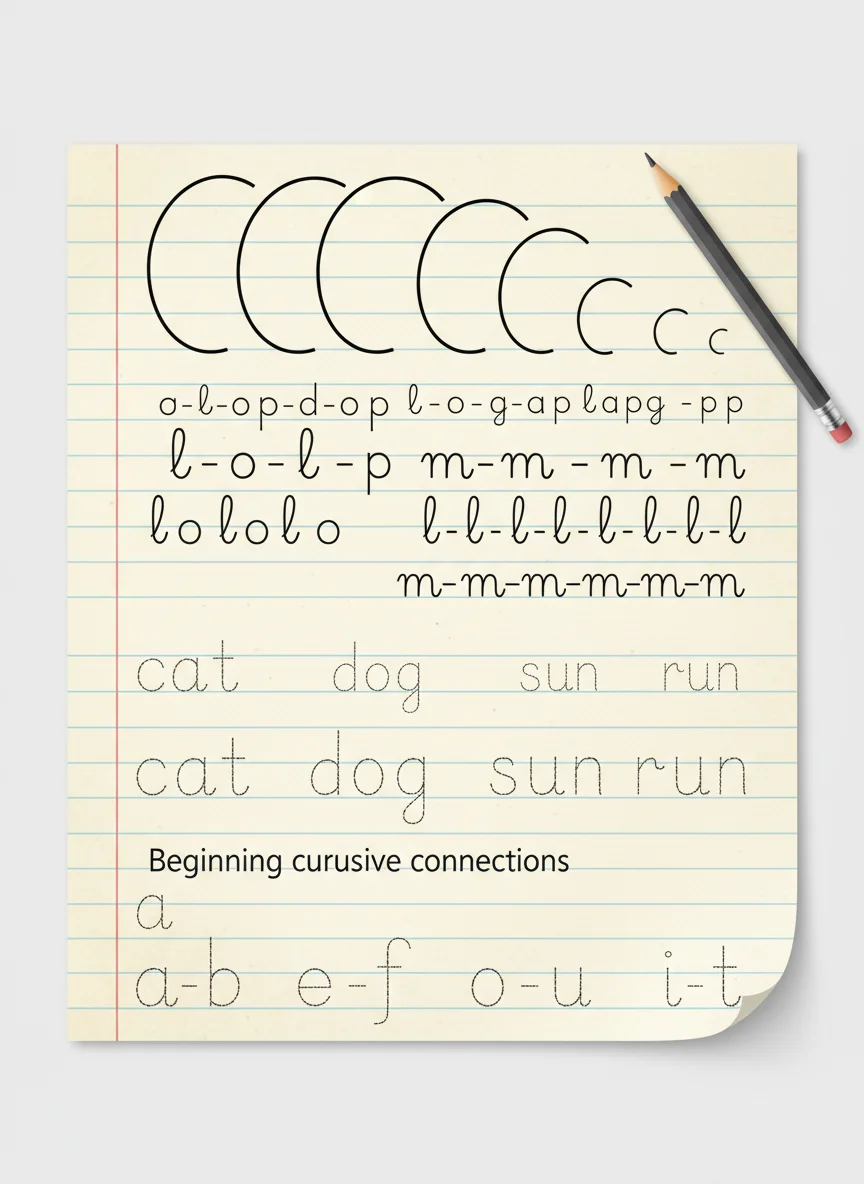 C C C C C C C c
a-l-op-d-op l-o-g-ap lapg -pp
l-o-l-p m-m-m-m
lo lo lo l-l-l-l-l-l-l-l
m-m-m-m-m-m
cat dog sun run
cat dog sun run
Beginning curusive connections
a
a-b e-f o-u i-t